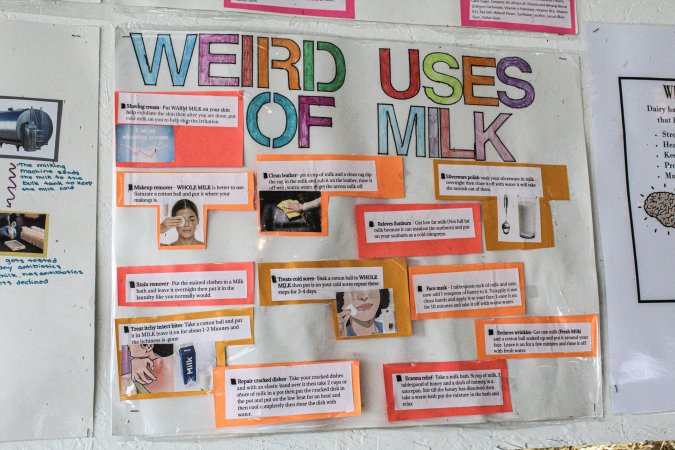 WEIRD USES
OF MILK
Shaving cream- Put WARM MILK on your skin
help exfoliate the skin then after you are done, put
cold milk on you to help stop the irritation
Makeup remover - WHOLE MILK is better to use.
Saturate a cotton ball and put it where your
makeup is.
Clean leather- get a cup of milk and a clean rag dip
the rag in the milk and rub it on the leather, rinse it
off wint, warm water to get the access milk off
Silverware polish- soak your silverware in milk
overnight then rinse it off with water it will take
the tarnish out of them.
Relieves Sunburn- Get low fat milk (Not full fat
milk because it can insulate the sunburn) and put
on your sunburn as a cold compress.
Stain remover- Put the stained clothes in a Milk
bath and leave it overnight then put it in the
laundry like you normally would.
Treats cold sores- Soak a cotton ball in WHOLE
MILK then put it on your cold sore repeat these
steps for 3-4 days.
Face mask- 1 tablespoon each of milk and oats,
now add 1 teaspoon of honey to it. To apply it use
clean hands and apply it to your face. Leave it on for
10 minutes and take it off with warm water.
Treat itchy insect bites- Take a cotton ball and put
it in MILK leave it on for about 1-2 Minutes and
the itchiness is gone
Milk
Reduces wrinkles- Get raw milk (Fresh Milk)
and a cotton ball soaked up and put it around your
face. Leave it on for a few minutes and rinse it off
with fresh water.
Repair cracked dishes- Take your cracked dishes
and with an elastic band over it then take 2 cups or
more of milk in a pot then put the cracked dish in
the pot and put on the low heat for an hour and
then cool completely then rinse the dish with
water.
Eczema relief- Take a milk bath. ¾ cup of milk, 2
tablespoon of honey and a dash of nutmeg in a
saucepan. Stir till the honey has dissolved then
take a warm bath put the mixture in the bath and
relax
The milking
machine sends
the milk to the
bulk tank to keep
the milk cold
gets tested
any antibiotics
milk, has antibiotics
declined
Dairy
that